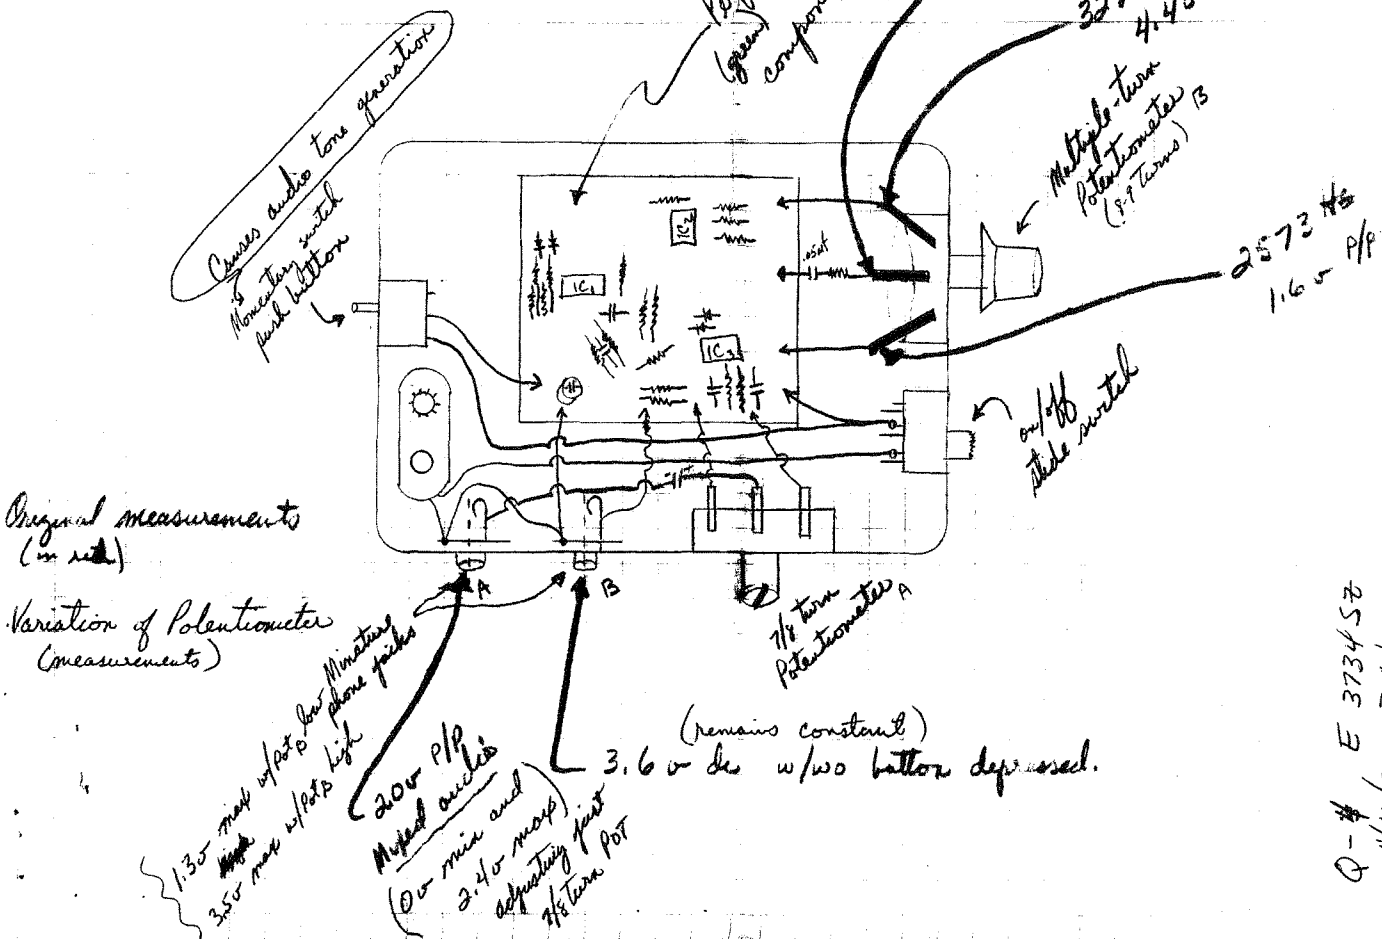 Causes audio tone generation
Momentary switch
push button
(green)
4.4v
Multiple-turn
Potentiometer B
(8-9 turns)
2573 Hz
1.6v P/P
.05uf
IC2
IC1
IC3
on/off
slide switch
Original measurements
(in red)
Variation of Potentiometer
(measurements)
A
B
Minature
phone jacks
7/8 turn
Potentiometer A
(remains constant)
3.6v dc w/wo button depressed.
1.3v max w/Pot B low
3.5v max w/Pot B high
2.0v P/P
Mixed audio
(0v min and
2.4v max)
adjusting just
7/8 turn POT
Q-# E 3734 SZ